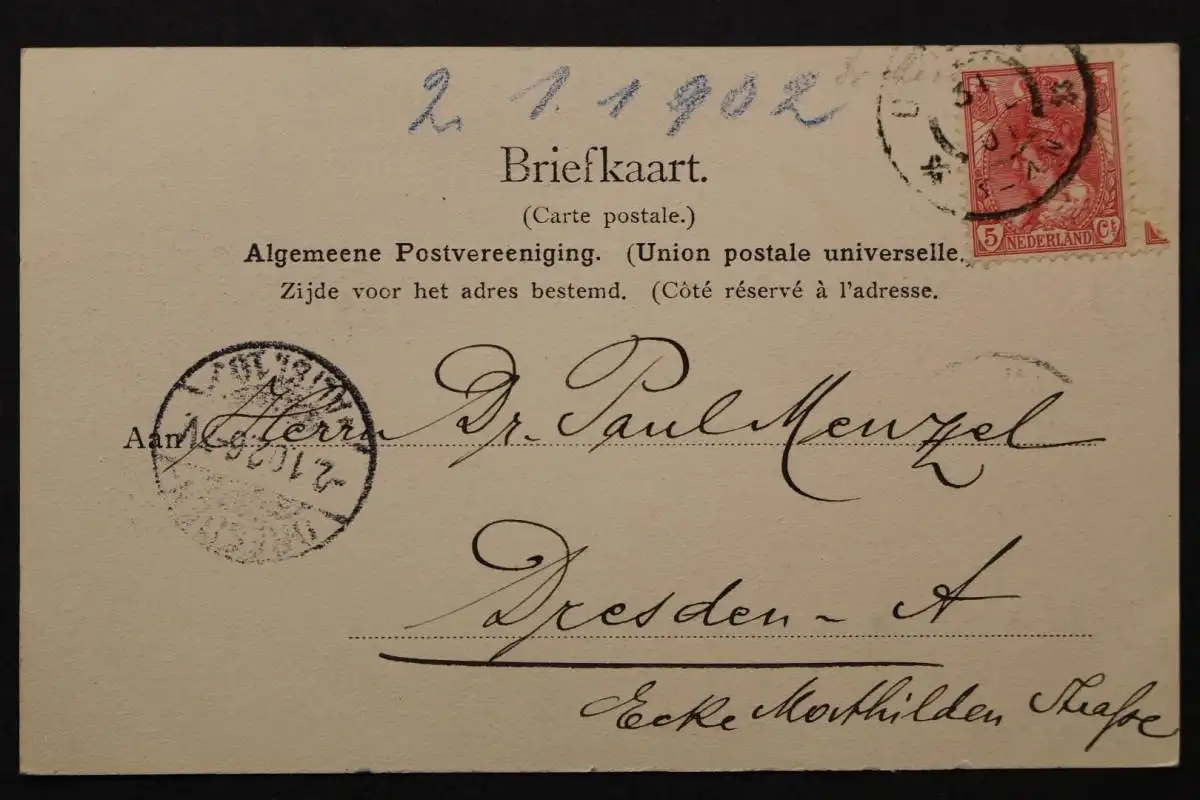 2. 1. 1902
Briefkaart.
(Carte postale.)
Algemeene Postvereeniging. (Union postale universelle.
Zijde voor het adres bestemd. (Côté réservé à l'adresse.
5 NEDERLAND Ct
Aan Herrn Dr. Paul Menzel
Dresden-A
Ecke Mathilden Strasse
2.1.02